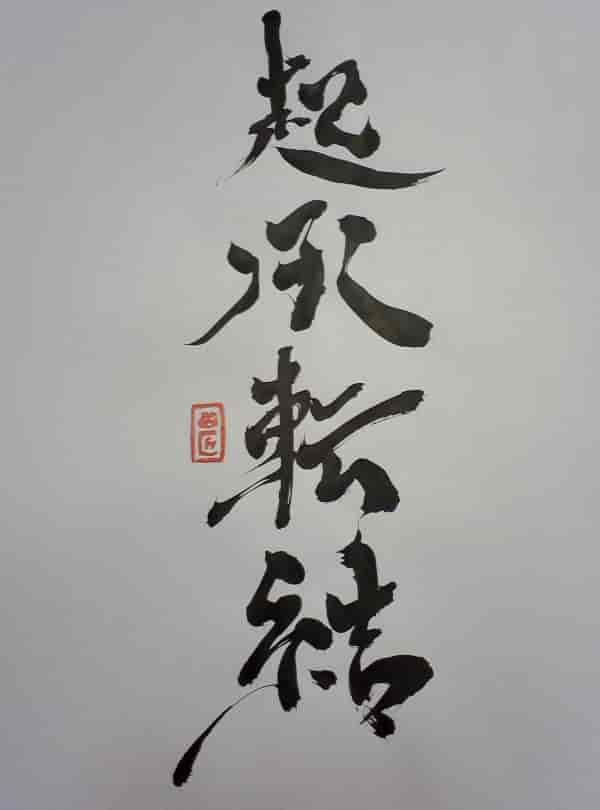 起承転結